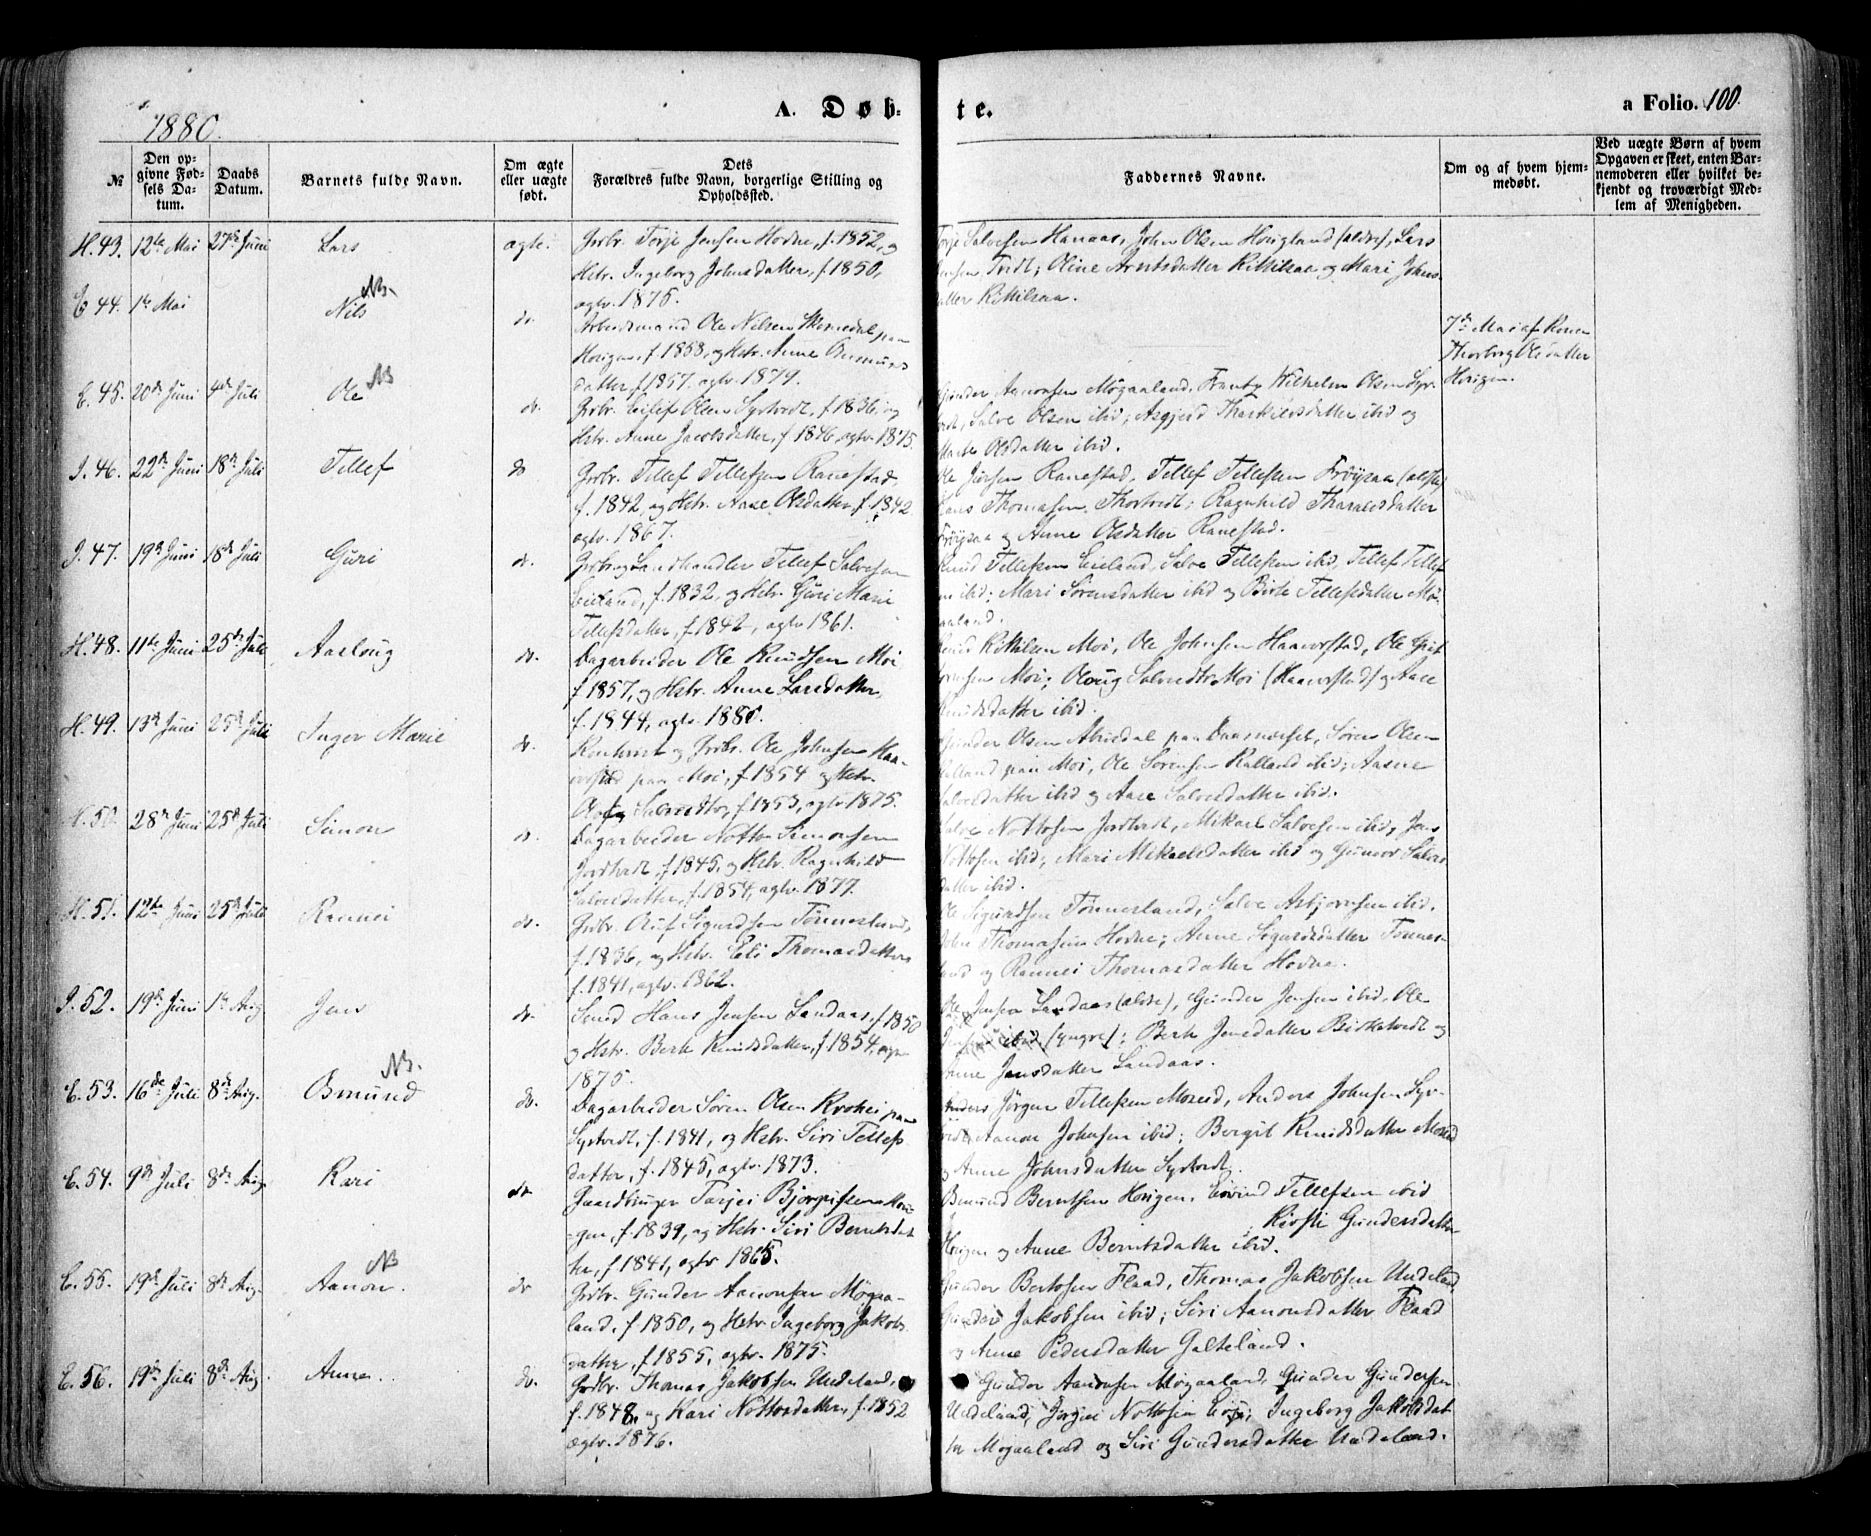 1880.
A. Døb-
te.
a Folio. 100.
№
Den op-
givne Fød-
sels Da-
tum.
Daabs
Datum.
Barnets fulde Navn.
Om ægte
eller uægte
født.
Dets
Forældres fulde Navn, borgerlige Stilling og
Opholdssted.
Faddernes Navne.
Om og af hvem hjem-
medøbt.
Ved uægte Børn af hvem
Opgaven er skeet, enten Bar-
nemoderen eller hvilket be-
kjendt og troværdigt Med-
lem af Menigheden.
H. 43. 12te Mai 27de Juni Lars ægte.
Grbr. Torje Jensen Hodne, f. 1852, og
Hstr. Ingeborg Johnsdatter, f. 1850,
ægtv. 1875.
Torje Salvesen Hanaas, John Olsen Honigland (ældre), Lars
Jensen Tvedt; Oline Arntsdatter Kittilsaa og Mari Johns-
datter Kittilsaa.
E. 44. 1ste Mai Nils NB. do
Arbeidsmand Ole Nilsen paa
Horigen, f. 1858, og Hstr. Anne Osmunds
datter f. 1857. ægtv. 1879.
7de Mai af Konen
Thorborg Olsdatter
Horigen.
E. 45. 20de Juni 4de Juli Ole NB do.
Grbr. Eilef Olsen Systvedt, f. 1836, og
Hstr. Anne Jacobsdatter, f. 1846, ægtv. 1875.
Gunder Aanonsen Møgaaland, Wilhelm Olsen Syst-
vedt, Salve Olsen ibid; Asgjerd Tharkildsdatter ibid og
Marte Olsdatter ibid.
I. 46. 22de Juni 18de Juli Tellef do
Grbr. Tellef Tellefsen Ranestad
f. 1842, og Hstr. Anne Olsdatter, f. 1842
ægtv. 1867.
Ole Jensen Ranestad, Tellef Tellefsen Frøysaa (ældste)
Hans Thomasen Thortvedt; Ragnhild Tharaldsdatter
Frøysaa og Anne Olsdatter Ranestad.
I. 47. 19de Juni 18de Juli Guri do.
Grbr. og Landhandler Tellef Salvesen
Eieland, f. 1832, og Hstr. Guri Marie
Tellefsdatter, f. 1842, ægtv 1861.
Knud Tellefsen Eieland, Salve Tellefsen ibid, Tellef Tellef
sen ibid; Mari Sørensdatter ibid og Birte Tellefsdatter Mø-
gaaland.
H. 48. 11te Juni 25de Juli Aaslaug do.
Dagarbeider Ole Knudsen Moi
f. 1857, og Hstr. Anne Larsdatter,
f. 1844, ægtv. 1880.
Knud Kittilsen Moi, Ole Johnsen Haaverstad, Ole
Moi; Olaug Salvesdtr Moi (Haaverstad) og Aase
Knudsdatter ibid.
H. 49. 13de Juni 25de Juli Inger Marie do.
og Grbr. Ole Johnsen Haa-
verstad paa Moi, f. 1854 og Hstr.
Olaug Salvesdtr, f. 1853, ægtv. 1875.
Gunder Olsen Abusdal paa Daasnæset, Søren Olsen
Kalland paa Moi, Ole Sørensen Kalland ibid; Aasne
Salvesdatter ibid og Aase Salvesdatter ibid.
H. 50. 28de Juni 25de Juli Simon do.
Dagarbeider Notto Simonsen
Jordtvedt, f. 1845, og Hstr. Ragnhild
Salvesdatter, f. 1854, ægtv. 1877.
Salve Nottosen Jordtvedt, Mikael Salvesen ibid, Jens
Nottosen ibid; Mari Mikaelsdatter ibid og Gunvor Salves-
datter ibid.
H. 51. 12te Juni 25de Juli Rannei do.
Grbr. Oluf Sigurdsen Tønnesland,
f. 1836, og Hstr. Eli Thomasdatter
f. 1841, ægtv. 1862.
Ole Sigurdsen Tønnesland, Salve Asbjørnsen ibid,
John Thomasen Hodne; Anne Sigurdsdatter Tønnes-
land og Rannei Thomasdatter Hodne.
I. 52. 19de Juni 1ste Aug. Jens do.
Smed Hans Jensen Landaas, f. 1850
og Hstr. Berte Knudsdatter, f. 1854, ægtv
1875.
Ole Jensen Landaas (ældre), Gunder Jensen ibid, Ole
Jensen ibid (yngre); Berte Jensdatter Birketvedt og
Anne Jensdatter Landaas.
E. 53. 16de Juli 8de Aug. Osmund NB. do.
Dagarbeider Søren Olsen Krokei paa
Systvedt, f. 1841, og Hstr. Siri Tellefs
datter, f. 1845, ægtv. 1873.
Anders Jørgen Tellefsen Moseid, Anders Johnsen Syst-
vedt Aanon Johnsen ibid; Bergit Knudsdatter Moseid
og Anne Johnsdatter Systvedt.
E. 54. 9de Juli 8de Aug. Kari do
Gaardbruger Tarjei Bjorgufsen Hori-
gen, f. 1839, og Hstr. Siri Berntsdat
ter, f. 1841, ægtv 1865.
Bernt Berntsen Horigen, Eivind Tellefsen ibid
; Kirsti Gundersdatter
Horigen og Anne Berntsdatter ibid.
E. 55. 19de Juli 8de Aug. Aanon. NB do
Grbr. Gunder Aanonsen Møgaa-
land, f. 1850, og Hstr. Ingeborg Jakobs
datter, f. 1855, ægtv. 1875.
Gunder Flaad, Thomas Jakobsen Undeland,
Gunder Jakobsen ibid; Siri Aanonsdatter Flaad
og Anne Pedersdatter Galteland.
E. 56. 19de Juli 8de Aug. Anne. do.
Grdbr. Thomas Jakobsen Undeland,
f. 1848, og Kari Nottosdatter, f. 1852
ægtv. 1876.
Gunder Aanonsen Møgaaland, Gunder Gundersen
Undeland, Nottosen ; Ingeborg Jakobsdat
ter Mogaaland og Siri Gundersdatter Undeland.